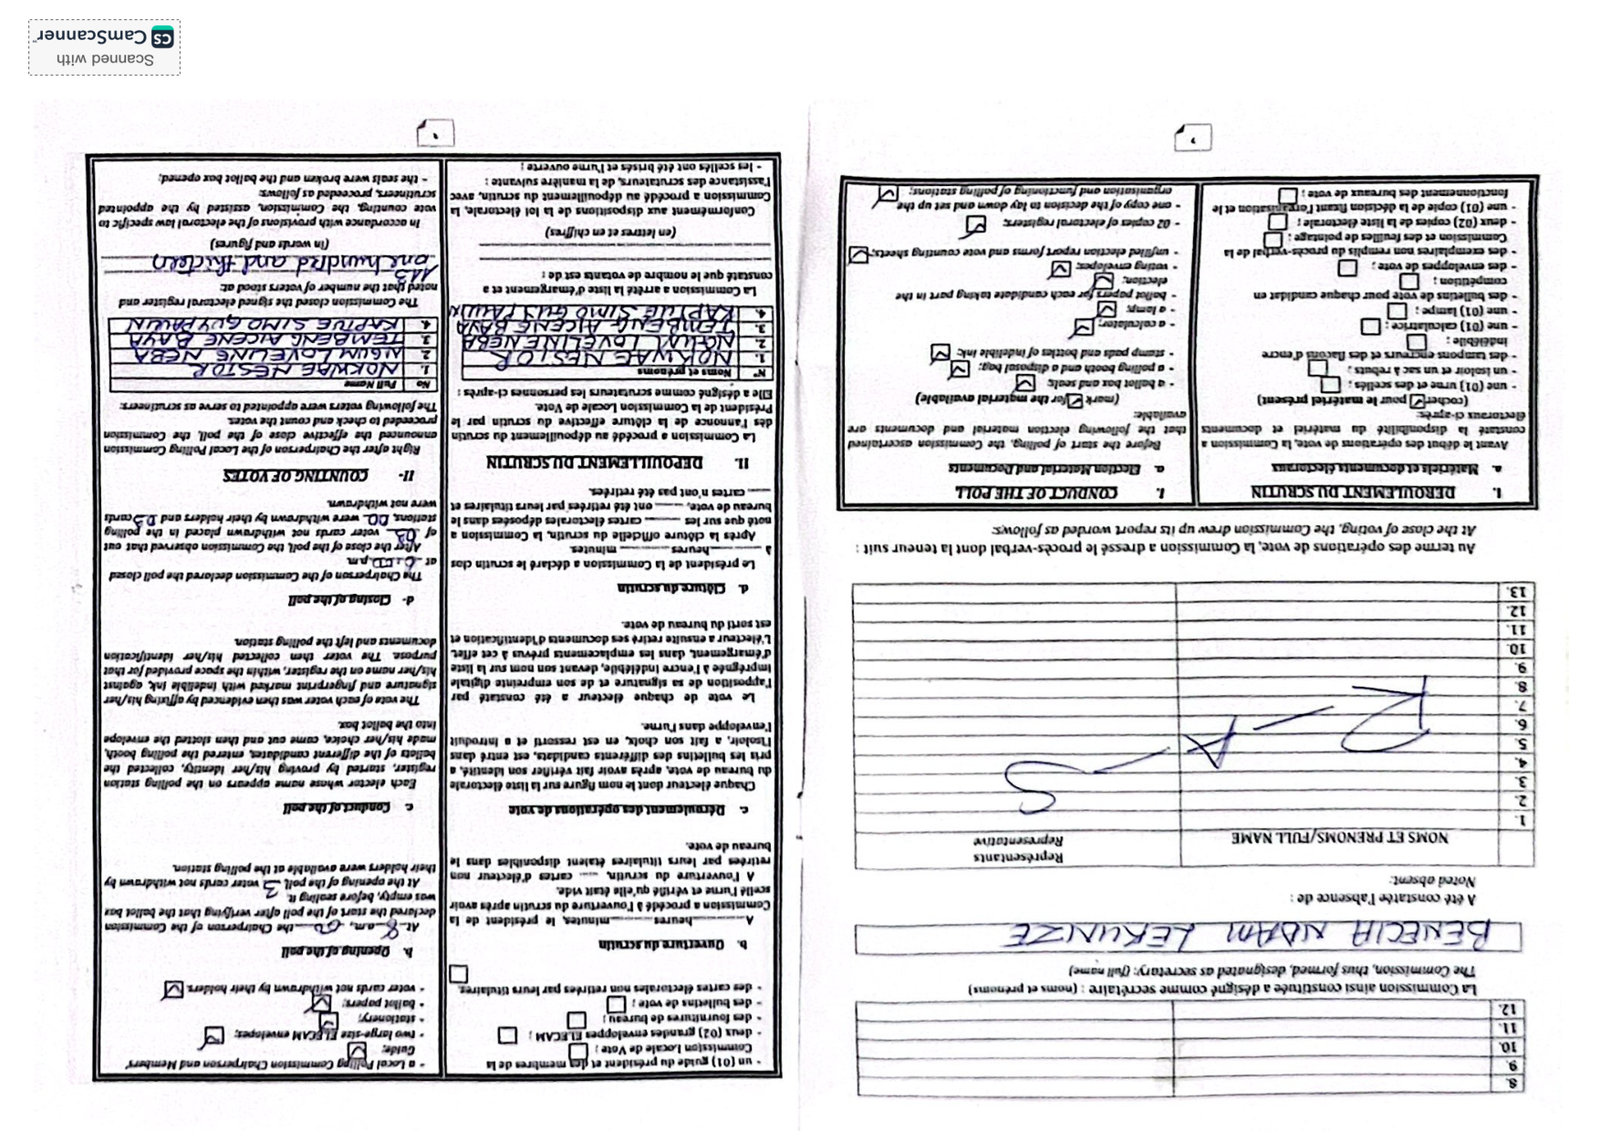 8.
9.
10.
11.
12.
La Commission ainsi constituée a désigné comme secrétaire : (noms et prénoms)
The Commission, thus formed, designated as secretary: (full name)
BENECIA NDAM LEKUNZE
A été constatée l'absence de :
Noted absent:
NOMS ET PRENOMS/FULL NAME
Représentants
Representative
1.
2.
3.
4.
5.
6.
7.
8.
9.
10.
11.
12.
13.
R - A - S
Au terme des opérations de vote, la Commission a dressé le procès-verbal dont la teneur suit :
At the close of voting, the Commission drew up its report worded as follows:
I. DEROULEMENT DU SCRUTIN
a. Matériels et documents électoraux
Avant le début des opérations de vote, la Commission a
constaté la disponibilité du matériel et documents
électoraux ci-après:
(cocher pour le matériel présent)
- une (01) urne et des scellés ;
- un isoloir et un sac à rebuts ;
- des tampons encreurs et des flacons d'encre
indélébile ;
- une (01) calculatrice ;
- une (01) lampe ;
- des bulletins de vote pour chaque candidat en
compétition ;
- des enveloppes de vote ;
- des exemplaires non remplis du procès-verbal de la
Commission et des feuilles de pointage ;
- deux (02) copies de la liste électorale ;
- une (01) copie de la décision fixant l'organisation et le
fonctionnement des bureaux de vote ;
I. CONDUCT OF THE POLL
a. Election Material and Documents
Before the start of polling, the Commission ascertained
that the following election material and documents are
available:
(mark for the material available)
- a ballot box and seals;
- a polling booth and a disposal bag;
- stamp pads and bottles of indelible ink;
- a calculator;
- a lamp;
- ballot papers for each candidate taking part in the
election;
- voting envelopes;
- unfilled election report forms and vote counting sheets;
- 02 copies of electoral registers;
- one copy of the decision to lay down and set up the
organisation and functioning of polling stations;
- un (01) guide du président et des membres de la
Commission Locale de Vote ;
- deux (02) grandes enveloppes ELECAM ;
- des fournitures de bureau ;
- des bulletins de vote ;
- des cartes électorales non retirées par leurs titulaires.
b. Ouverture du scrutin
A heures minutes, le président de la
Commission a procédé à l'ouverture du scrutin après avoir
scellé l'urne et vérifié qu'elle était vide.
A l'ouverture du scrutin, cartes d'électeur non
retirées par leurs titulaires étaient disponibles dans le
bureau de vote.
c. Déroulement des opérations de vote
Chaque électeur dont le nom figure sur la liste électorale
du bureau de vote, après avoir fait vérifier son identité, a
pris les bulletins des différents candidats, est entré dans
l'isoloir, a fait son choix, en est ressorti et a introduit
l'enveloppe dans l'urne.
Le vote de chaque électeur a été constaté par
l'apposition de sa signature et de son empreinte digitale
imprégnée à l'encre indélébile, devant son nom sur la liste
d'émargement, dans les emplacements prévus à cet effet.
L'électeur a ensuite retiré ses documents d'identification et
est sorti du bureau de vote.
d. Clôture du scrutin
Le président de la Commission a déclaré le scrutin clos
à heures minutes.
Après la clôture officielle du scrutin, la Commission a
noté que sur les cartes électorales déposées dans le
bureau de vote, ont été retirées par leurs titulaires et
cartes n'ont pas été retirées.
II. DEPOUILLEMENT DU SCRUTIN
La Commission a procédé au dépouillement du scrutin
dès l'annonce de la clôture effective du scrutin par le
Président de la Commission Locale de Vote.
Elle a désigné comme scrutateurs les personnes ci-après :
N° Noms et prénoms
1. NOKWAE NESTOR
2. NGUM LOVELINE NEBA
3. TEMBENG AICENE BAYA
4. KAPTUE SIMO GUY PAULIN
La Commission a arrêté la liste d'émargement et a
constaté que le nombre de votants est de :
(en lettres et en chiffres)
Conformément aux dispositions de la loi électorale, la
Commission a procédé au dépouillement du scrutin, avec
l'assistance des scrutateurs, de la manière suivante :
- les scellés ont été brisés et l'urne ouverte ;
- a Local Polling Commission Chairperson and Members'
Guide;
- two large-size ELECAM envelopes;
- stationery;
- ballot papers;
- voter cards not withdrawn by their holders.
b. Opening of the poll
At 8 a.m, 00 the Chairperson of the Commission
declared the start of the poll after verifying that the ballot box
was empty, before sealing it.
At the opening of the poll, 3 voter cards not withdrawn by
their holders were available at the polling station.
c. Conduct of the poll
Each elector whose name appears on the polling station
register, started by proving his/her identity, collected the
ballots of the different candidates, entered the polling booth,
made his/her choice, came out and then slotted the envelope
into the ballot box.
The vote of each voter was then evidenced by affixing his/her
signature and fingerprint marked with indelible ink, against
his/her name on the register, within the space provided for that
purpose. The voter then collected his/her identification
documents and left the polling station.
d- Closing of the poll
The Chairperson of the Commission declared the poll closed
at 6:00 p.m.
After the close of the poll, the Commission observed that out
of 03 voter cards not withdrawn placed in the polling
stations, 00 were withdrawn by their holders and 03 cards
were not withdrawn.
II- COUNTING OF VOTES
Right after the Chairperson of the Local Polling Commission
announced the effective close of the poll, the Commission
proceeded to check and count the votes.
The following voters were appointed to serve as scrutineers:
No Full Name
1. NOKWAE NESTOR
2. NGUM LOVELINE NEBA
3. TEMBENG AICENE BAYA
4. KAPTUE SIMO GUY PAULIN
The Commission closed the signed electoral register and
noted that the number of voters stood at:
113
one hundred and thirteen
(in words and figures)
In accordance with provisions of the electoral law specific to
vote counting, the Commission, assisted by the appointed
scrutineers, proceeded as follows:
- the seals were broken and the ballot box opened;
Scanned with
CS CamScanner